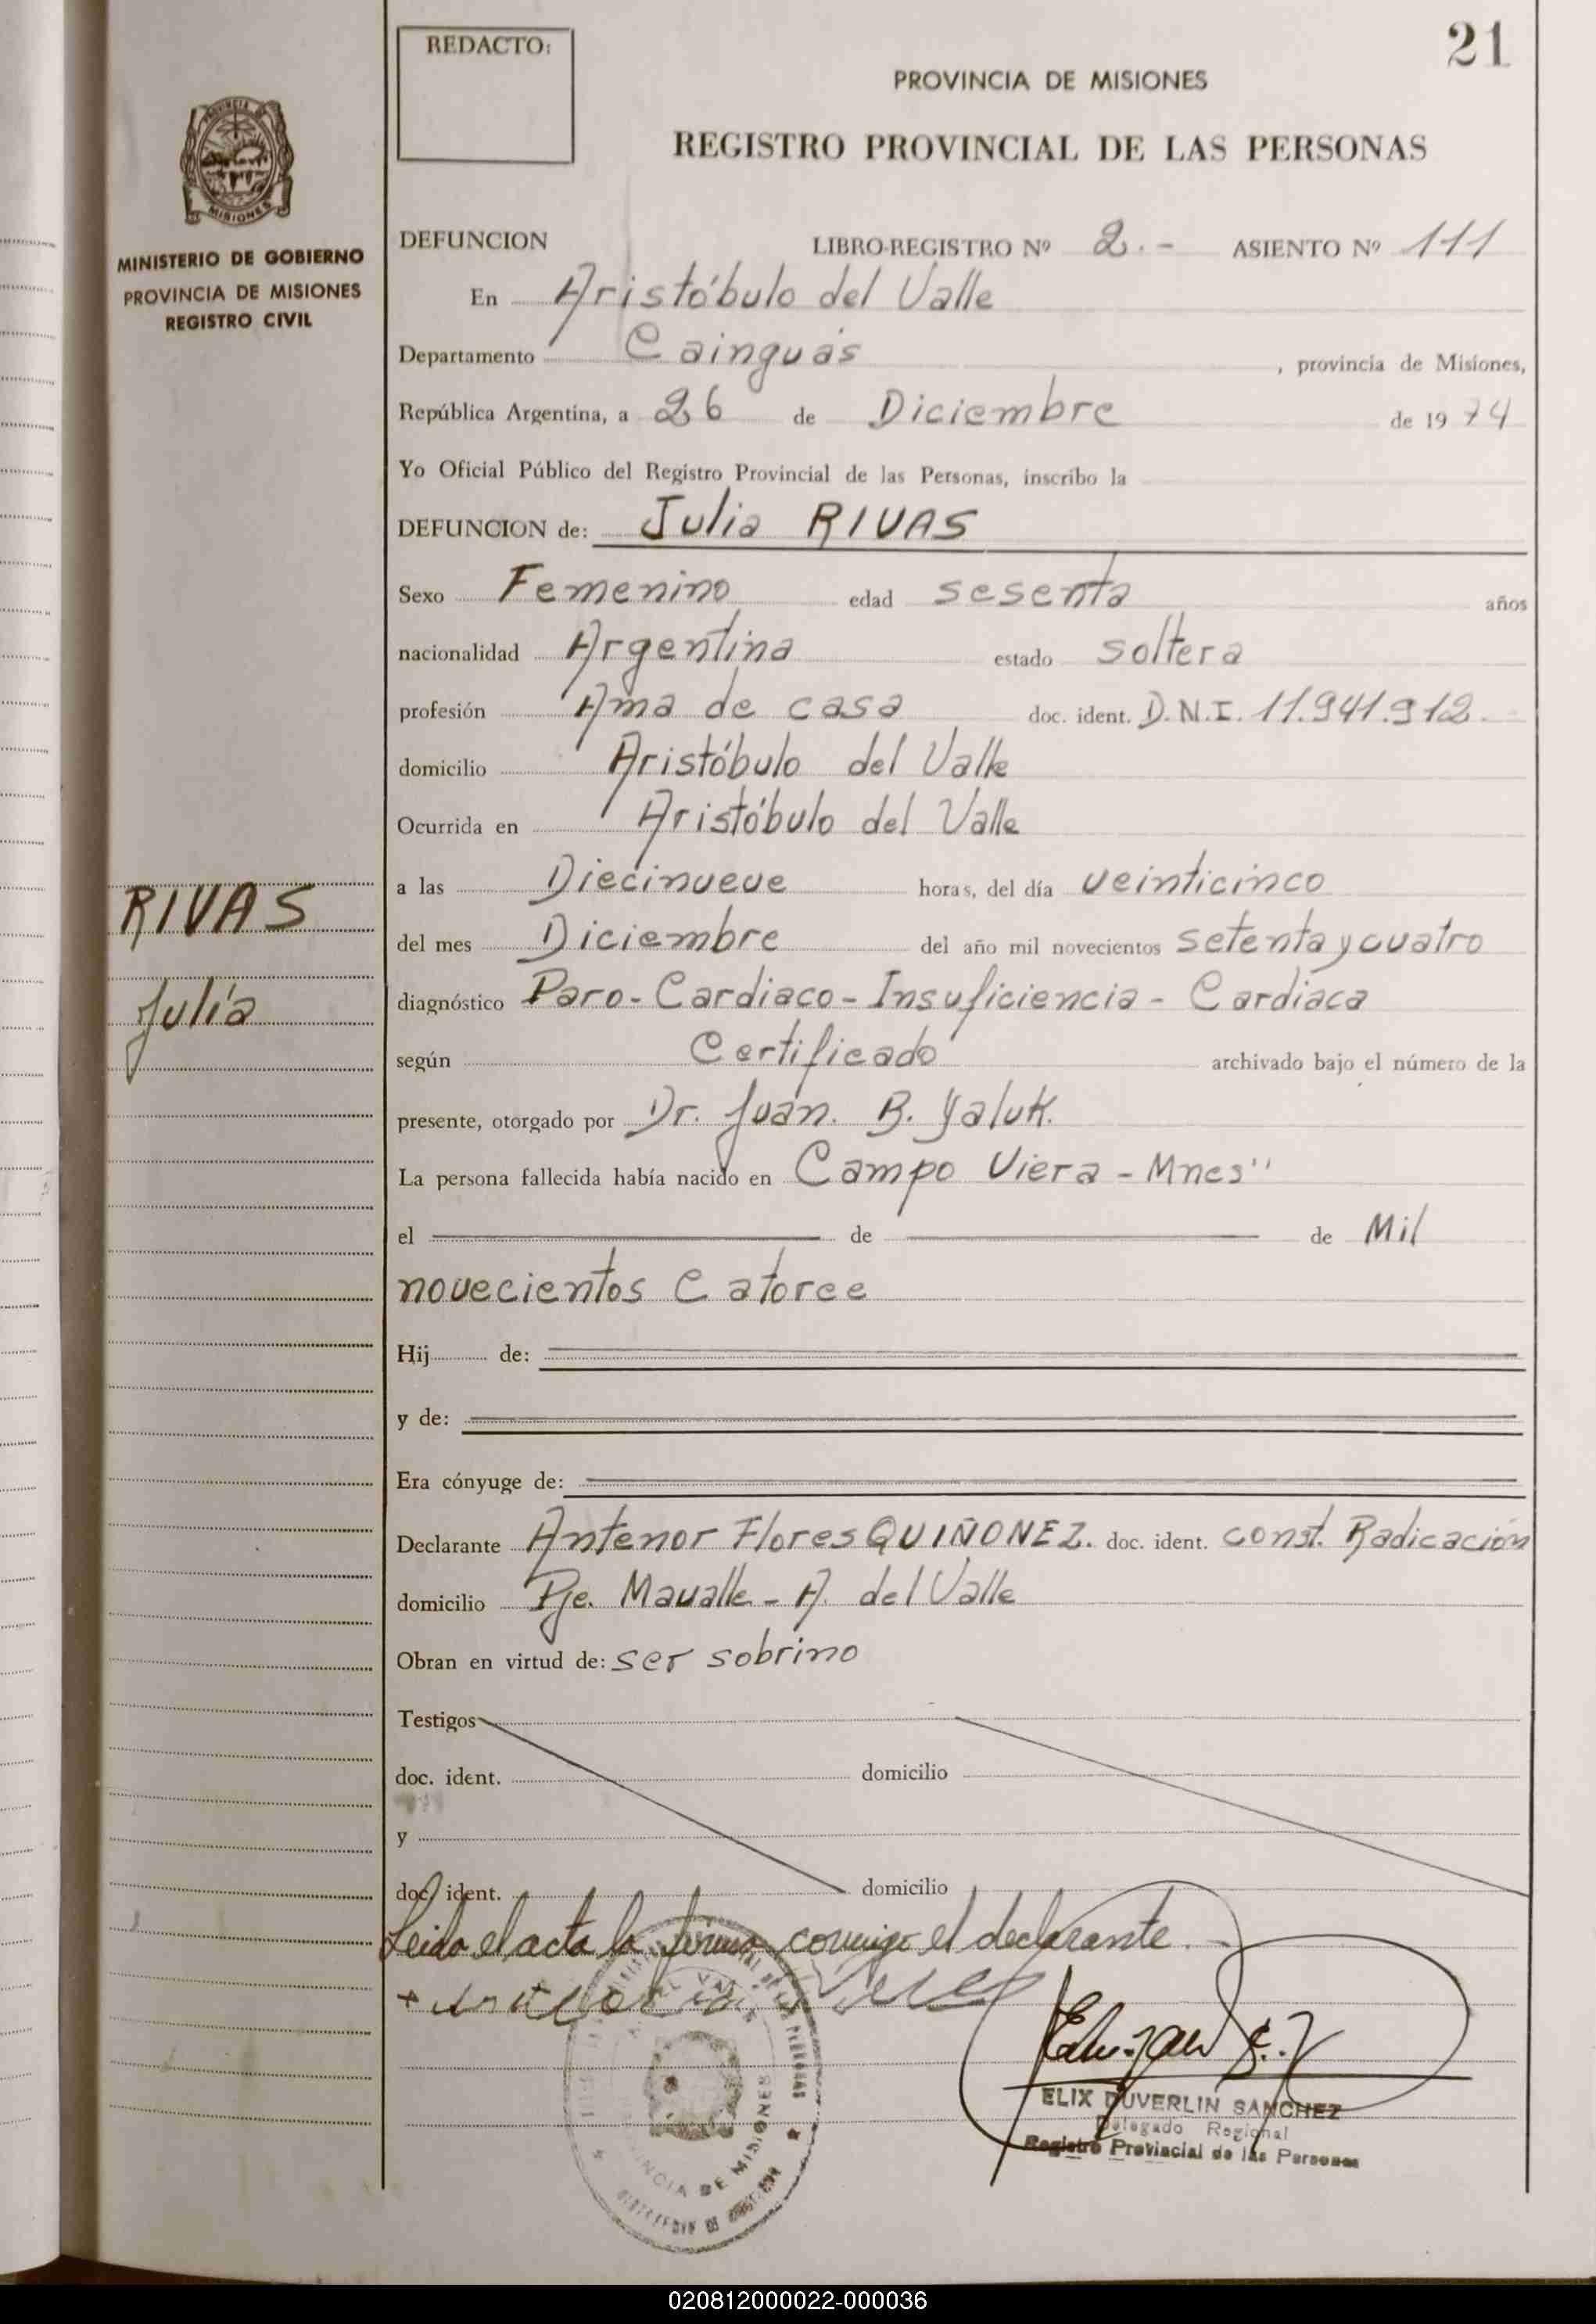 21
REDACTO:
PROVINCIA DE MISIONES
REGISTRO PROVINCIAL DE LAS PERSONAS
MISIONES
MINISTERIO DE GOBIERNO
PROVINCIA DE MISIONES
REGISTRO CIVIL
DEFUNCION LIBRO-REGISTRO Nº 2.- ASIENTO Nº 111
En Aristóbulo del Valle
Departamento Cainguás, provincia de Misiones,
República Argentina, a 26 de Diciembre de 1974
Yo Oficial Público del Registro Provincial de las Personas, inscribo la
DEFUNCION de: Julia RIVAS
Sexo Femenino edad sesenta años
nacionalidad Argentina estado soltera
profesión Ama de casa doc. ident. D.N.I. 11.941.912.-
domicilio Aristóbulo del Valle
Ocurrida en Aristóbulo del Valle
RIVAS
Julia
a las Diecinueve horas, del día veinticinco
del mes Diciembre del año mil novecientos setenta y cuatro
diagnóstico Paro-Cardiaco-Insuficiencia-Cardiaca
según Certificado archivado bajo el número de la
presente, otorgado por Dr. Juan. B. Yaluk.
La persona fallecida había nacido en Campo Viera - Mnes"
el de de Mil
novecientos Catorce
Hij de:
y de:
Era cónyuge de:
Declarante Antenor Flores QUIÑONEZ. doc. ident. const. Radicación
domicilio Pje. Mavalle - A. del Valle
Obran en virtud de: ser sobrino
Testigos
doc. ident. domicilio
y
doc. ident. domicilio
Leida el acta la firma conmigo el declarante.
ELIX DUVERLIN SANCHEZ
Delegado Regional
Registro Provincial de las Personas
PROVINCIA DE MISIONES
020812000022-000036